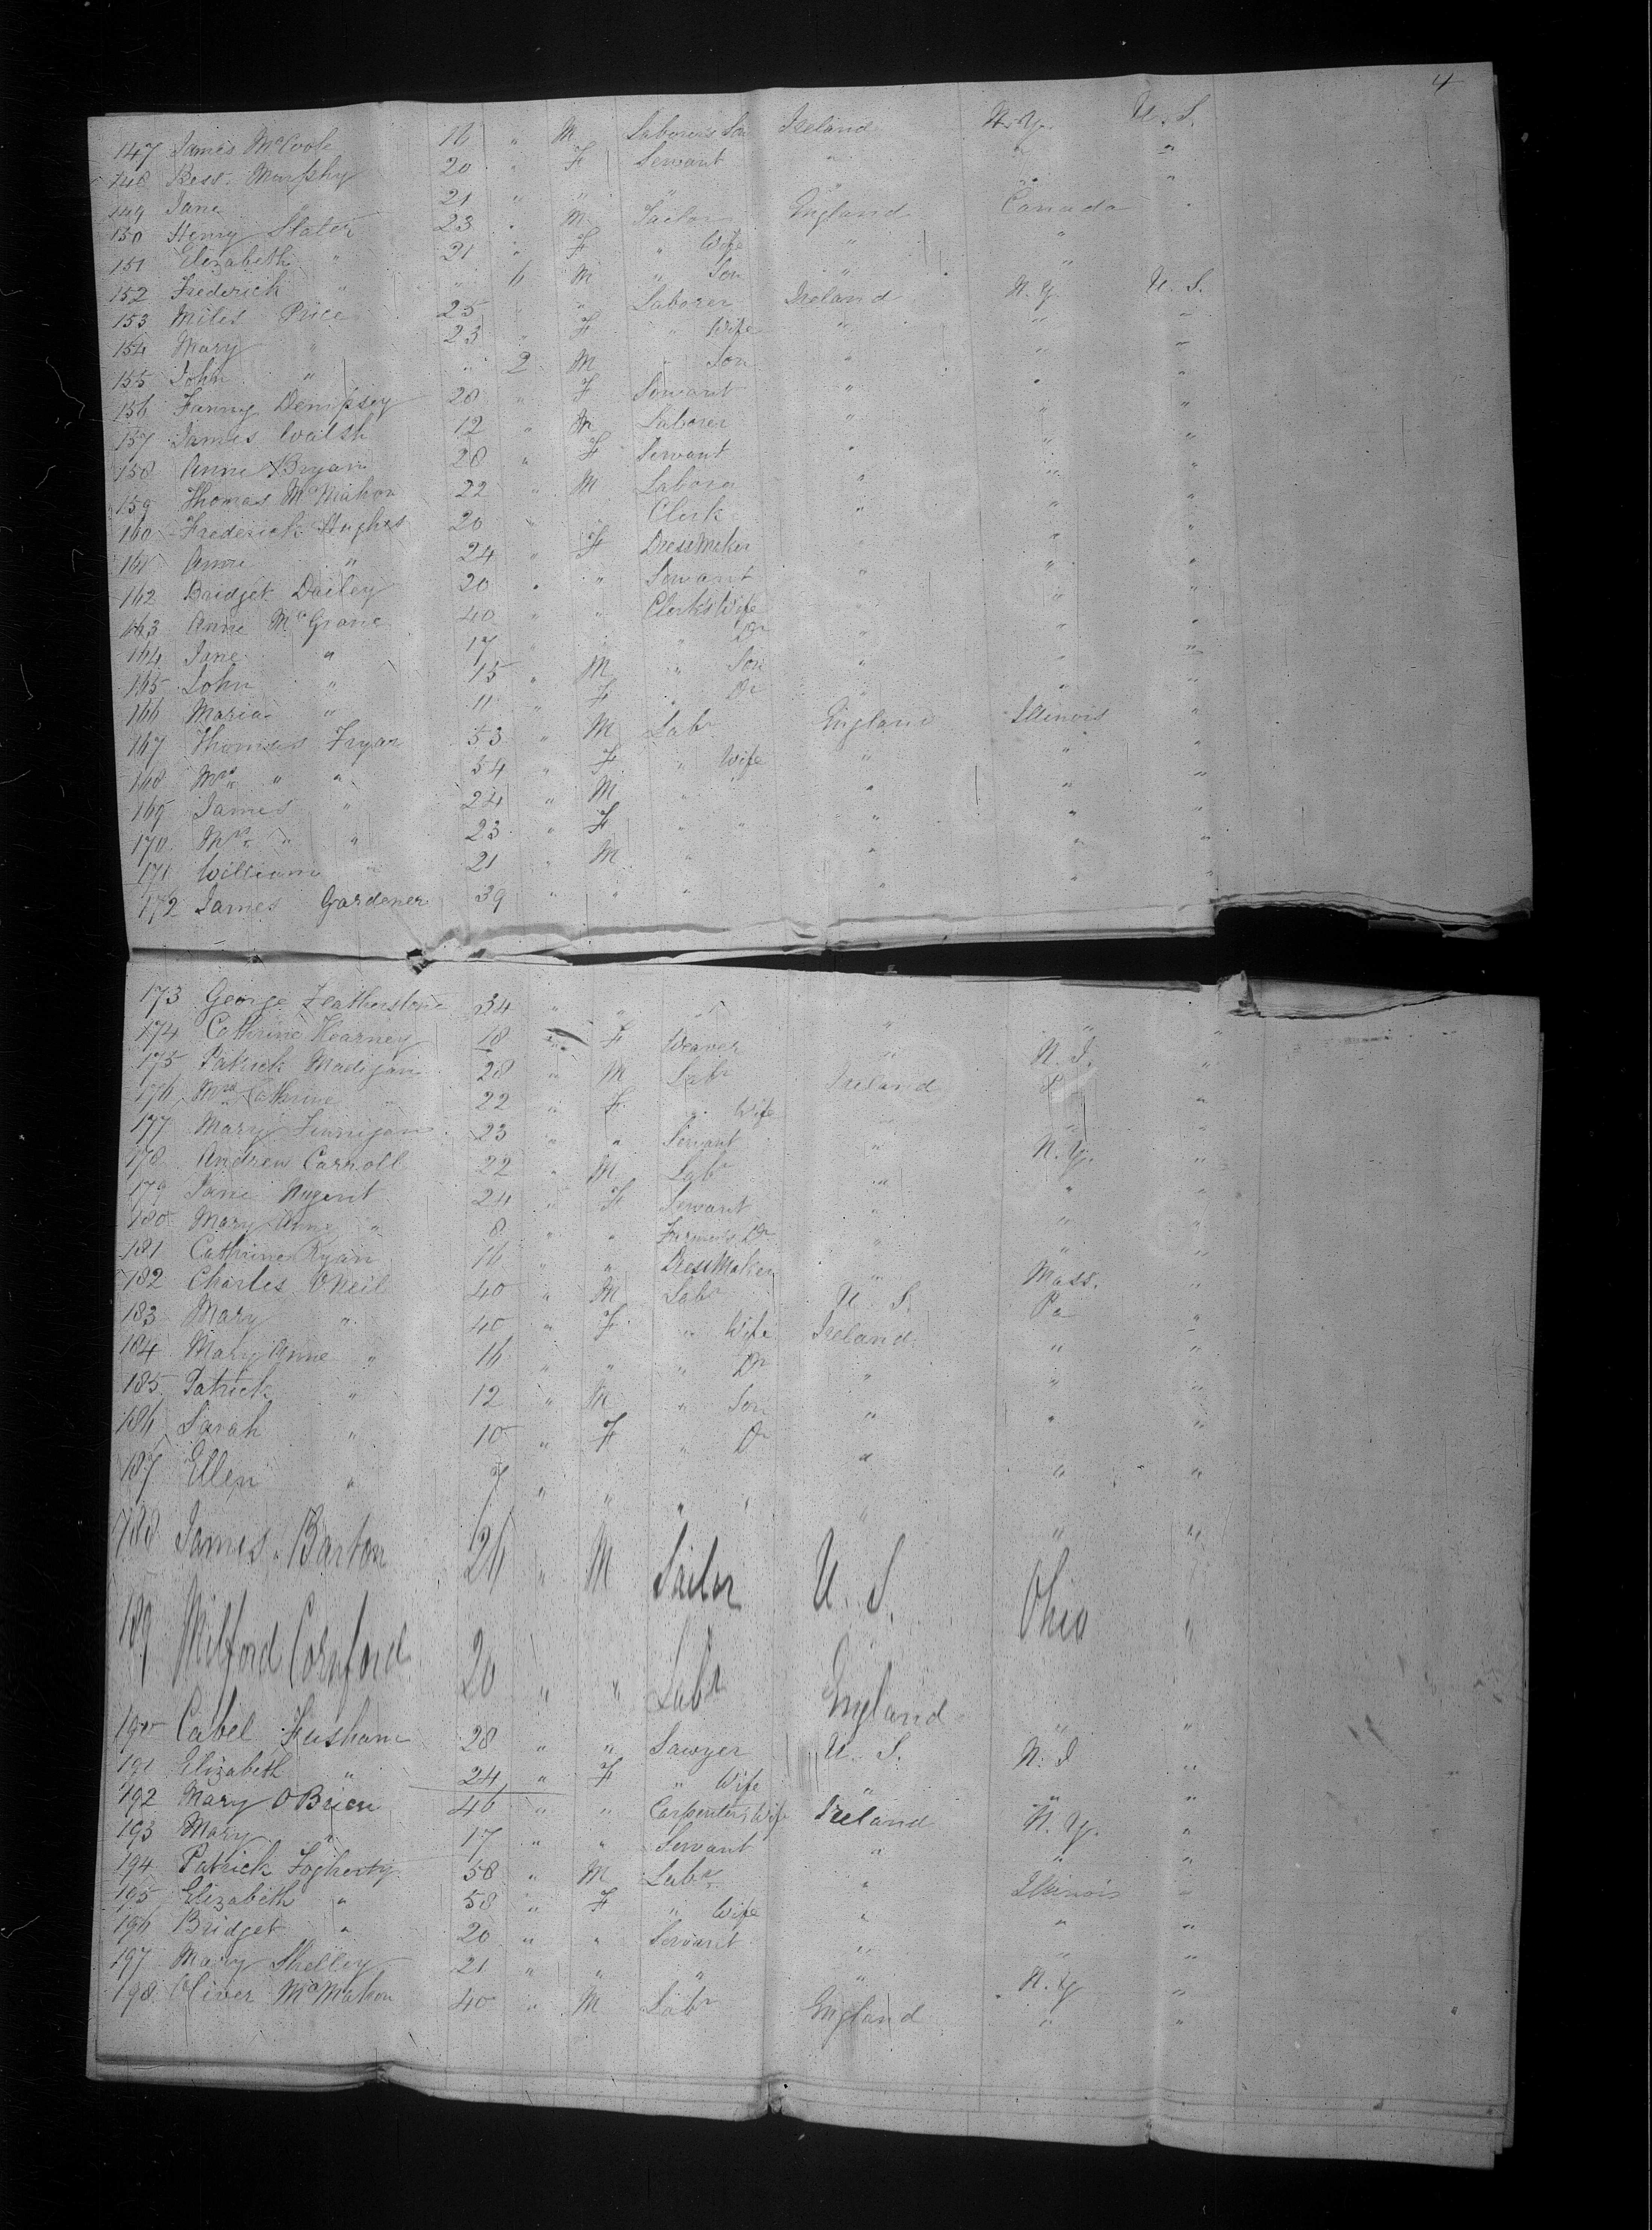 4
147 James McCoole 16 " M Laborers Son Ireland N.Y. U.S.
148 Bess. Murphy 20 " F Servant " " "
149 Jane " 21 " " " " " "
150 Henry Slater 23 " M Tailor England Canada "
151 Elizabeth " 21 " F " Wife " "
152 Frederick " " 6 M " Son " "
153 Miles Price 25 " " Laborer Ireland N.Y. U.S.
154 Mary " 23 " F " Wife " " "
155 John " " 2 M " Son " " "
156 Fanny Dempsey 28 " F Servant " " "
157 James Walsh 12 " M Laborer " " "
158 Anne Bryan 28 " F Servant " " "
159 Thomas McMahon 22 " M Laborer " " "
160 Frederick Hughes 20 " " Clerk " " "
161 Anne " 24 " F DressMaker " " "
162 Bridget Dailey 20 " " Servant " " "
163 Anne McGrane 40 " " Clerks Wife " " "
164 Jane " 17 " " " Dr " " "
165 John " 15 " M " Son " " "
166 Maria " 11 " F " Dr " " "
167 Thomas Fryar 53 " M Labr England Illinois "
168 Mrs " " 54 " F " Wife " " "
169 James " 24 " M " " " "
170 Mrs " " 23 " F " " " " "
171 William " 21 " M " " " "
172 James Gardener 39 " " " " " "
173 George Featherstone 34 " " " " " "
174 Cathrine Kearney 18 " F Weaver " N.J. "
175 Patrick Madigan 28 " M Labr Ireland "
176 Mrs Cathrine " 22 " F " Wife " " "
177 Mary Finnigan 23 " " Servant " N.Y. "
178 Andrew Carroll 22 " M Labr " " "
179 Jane Nugent 24 " F Servant " " "
180 Mary Anne " 8 " " Farmers Dr " " "
181 Cathrine Ryan 16 " " DressMaker " Mass. "
182 Charles ONeil 40 " M Labr U S. Pa "
183 Mary " 40 " F " Wife Ireland " "
184 Mary Anne " 16 " " " Dr " " "
185 Patrick " 12 " M " Son " " "
186 Sarah " 10 " F " Dr " " "
187 Ellen " 7 " " " " " "
188 James Barton 26 " M Sailor U. S. Ohio "
189 Milford Cornford 20 " " Labr England " "
190 Cabel Husham 28 " " Sawyer U. S. N.J "
191 Elizabeth " 24 " F " Wife " " "
192 Mary OBrien 46 " " Carpenters Wife Ireland N.Y. "
193 Mary " 17 " " Servant " " "
194 Patrick Fogherty 58 " M Labr " Illinois "
195 Elizabeth " 58 " F " Wife " " "
196 Bridget " 20 " " Servant " " "
197 Mary Skelley 21 " " " " N.Y "
198 Oliver McMahon 40 " M Labr England " "